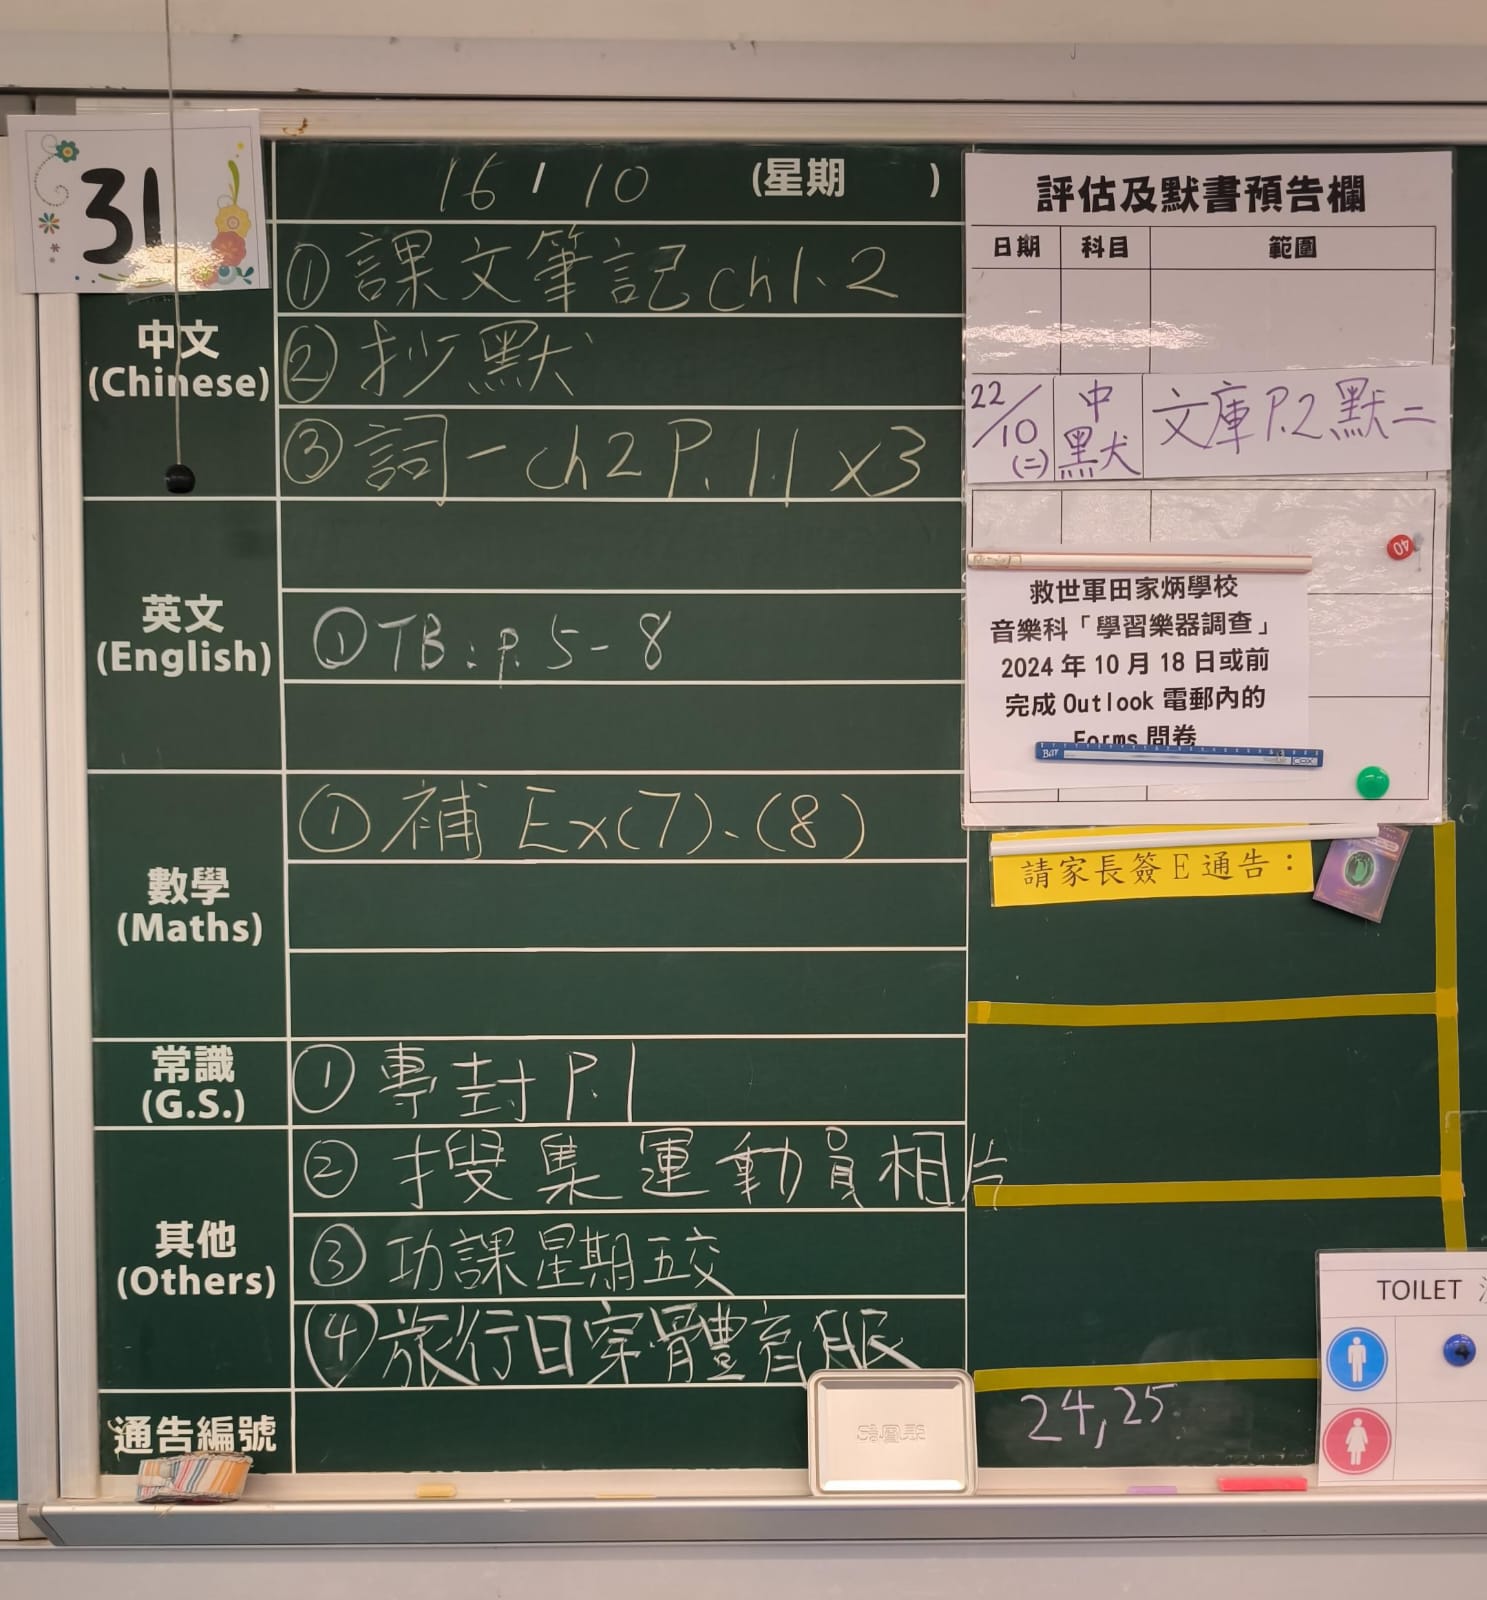 31
16 / 10 (星期 )
中文
(Chinese)
① 課文筆記 ch1、2
② 抄默
③ 詞一 ch2 P.11 x3
英文
(English)
① TB: p.5-8
數學
(Maths)
① 補 Ex(7)、(8)
常識
(G.S.)
① 專封 P.1
其他
(Others)
② 搜集運動員相片
③ 功課星期五交
④ 旅行日穿體育服
通告編號
評估及默書預告欄
日期 科目 範圍
22/10 (二) 中默 文庫 P.2 默二
40
救世軍田家炳學校
音樂科「學習樂器調查」
2024 年 10 月 18 日或前
完成 Outlook 電郵內的
Forms 問卷
請家長簽 E 通告：
24, 25
TOILET
4